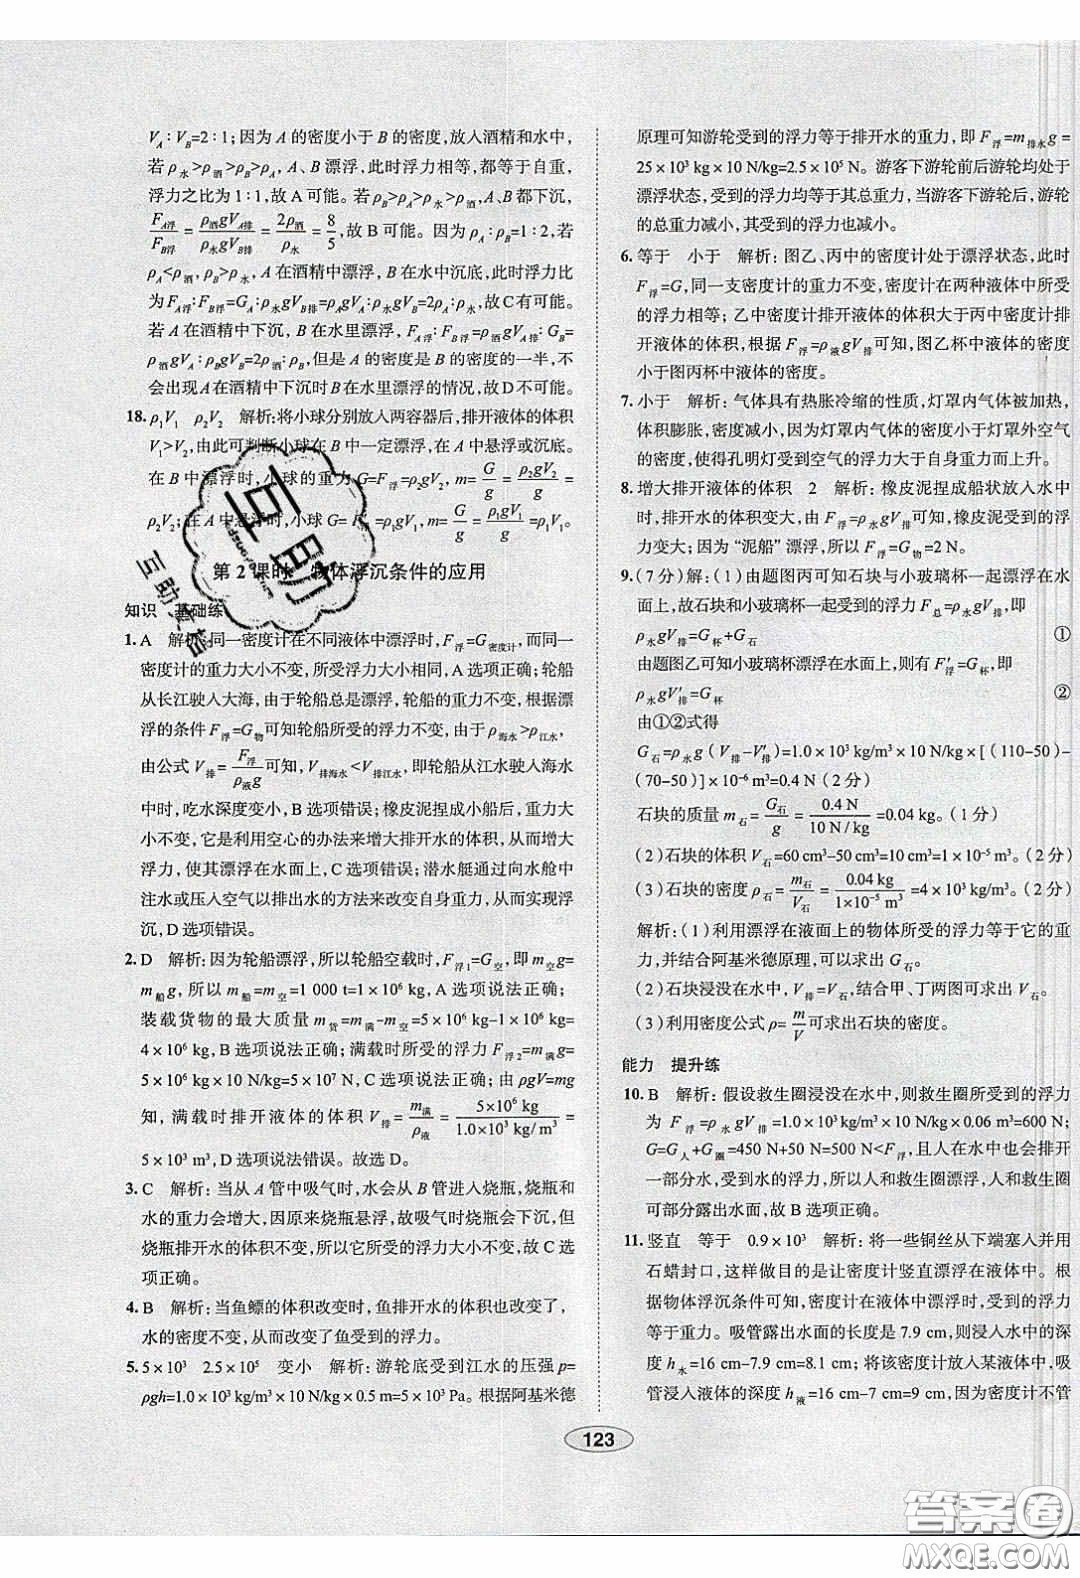 V_A∶V_B=2∶1;因为A的密度小于B的密度,放入酒精和水中,
若ρ水>ρ酒>ρ_B>ρ_A,A、B漂浮,此时浮力相等,都等于自重,
浮力之比为1∶1,故A可能。若ρ_B>ρ_A>ρ水>ρ酒,A、B都下沉,
F_A浮/F_B浮=ρ酒gV_A排/ρ水gV_B排=2ρ酒/ρ水=8/5,故B可能。因为ρ_A∶ρ_B=1∶2,若
ρ_A<ρ酒<ρ水<ρ_B,A在酒精中漂浮,B在水中沉底,此时浮力比
为F_A浮∶F_B浮=G_A∶ρ水gV_B排=ρ_AgV_A∶ρ水gV_B=2ρ_A∶ρ水,故C有可能。
若A在酒精中下沉,B在水里漂浮,F_A浮∶F_B浮=ρ酒gV_A排∶G_B=
ρ酒gV_A∶ρ_BgV_B=2ρ酒∶ρ_B,但是A的密度是B的密度的一半,不
会出现A在酒精中下沉时B在水里漂浮的情况,故D不可能。
18.ρ₁V₁ ρ₂V₂ 解析:将小球分别放入两容器后,排开液体的体积
V₁>V₂,由此可判断小球在B中一定漂浮,在A中悬浮或沉底。
在B中漂浮时,小球的重力G=F浮=ρ₂gV₂,m=G/g=ρ₂gV₂/g=
ρ₂V₂;在A中悬浮时,小球G=F浮=ρ₁gV₁,m=G/g=ρ₁gV₁/g=ρ₁V₁。
第2课时 物体浮沉条件的应用
知识 基础练
1.A 解析:同一密度计在不同液体中漂浮时,F浮=G密度计,而同一
密度计的重力大小不变,所受浮力大小相同,A选项正确;轮船
从长江驶入大海,由于轮船总是漂浮,轮船的重力不变,根据漂
浮的条件F浮=G物可知轮船所受的浮力不变,由于ρ海水>ρ江水,
由公式V排=F浮/ρ液g可知,V排海水<V排江水,即轮船从江水驶入海水
中时,吃水深度变小,B选项错误;橡皮泥捏成小船后,重力大
小不变,它是利用空心的办法来增大排开水的体积,从而增大
浮力,使其漂浮在水面上,C选项错误;潜水艇通过向水舱中
注水或压入空气以排出水的方法来改变自身重力,从而实现浮
沉,D选项错误。
2.D 解析:因为轮船漂浮,所以轮船空载时,F浮1=G空,即m空g=
m船g,所以m船=m空=1 000 t=1×10⁶ kg,A选项说法正确;
装载货物的最大质量m货=m满-m空=5×10⁶ kg-1×10⁶ kg=
4×10⁶ kg,B选项说法正确;满载时所受的浮力F浮2=m满g=
5×10⁶ kg×10 N/kg=5×10⁷ N,C选项说法正确;由ρgV=mg
知,满载时排开液体的体积V排=m满/ρ液=5×10⁶ kg/1.0×10³ kg/m³=
5×10³ m³,D选项说法错误。故选D。
3.C 解析:当从A管中吸气时,水会从B管进入烧瓶,烧瓶和
水的重力会增大,因原来烧瓶悬浮,故吸气时烧瓶会下沉,但
烧瓶排开水的体积不变,所以它所受的浮力大小不变,故C选
项正确。
4.B 解析:当鱼鳔的体积改变时,鱼排开水的体积也改变了,
水的密度不变,从而改变了鱼受到的浮力。
5.5×10³ 2.5×10⁵ 变小 解析:游轮底受到江水的压强p=
ρgh=1.0×10³ kg/m³×10 N/kg×0.5 m=5×10³ Pa。根据阿基米德
原理可知游轮受到的浮力等于排开水的重力,即F浮=m排水g=
25×10³ kg×10 N/kg=2.5×10⁵ N。游客下游轮前后游轮均处于
漂浮状态,受到的浮力均等于其总重力,当游客下游轮后,游轮
的总重力减小,其受到的浮力也减小。
6.等于 小于 解析:图乙、丙中的密度计处于漂浮状态,此时
F浮=G,同一支密度计的重力不变,密度计在两种液体中所受
的浮力相等;乙中密度计排开液体的体积大于丙中密度计排
开液体的体积,根据F浮=ρ液gV排可知,图乙杯中液体的密度
小于图丙杯中液体的密度。
7.小于 解析:气体具有热胀冷缩的性质,灯罩内气体被加热,
体积膨胀,密度减小,因为灯罩内气体的密度小于灯罩外空气
的密度,使得孔明灯受到空气的浮力大于自身重力而上升。
8.增大排开液体的体积 2 解析:橡皮泥捏成船状放入水中
时,排开水的体积变大,由F浮=ρ水gV排可知,橡皮泥受到的浮
力变大;因为“泥船”漂浮,所以F浮=G物=2 N。
9.(7分)解:(1)由题图丙可知石块与小玻璃杯一起漂浮在水
面上,故石块和小玻璃杯受到的浮力F总=ρ水gV排,即
ρ水gV排=G杯+G石 ①
由题图乙可知小玻璃杯漂浮在水面上,则有F′浮=G杯,即
ρ水gV′排=G杯 ②
由①②式得
G石=ρ水g(V排-V′排)=1.0×10³ kg/m³×10 N/kg×[(110-50)-
(70-50)]×10⁻⁶ m³=0.4 N(2分)
石块的质量m石=G石/g=0.4 N/10 N/kg=0.04 kg。(1分)
(2)石块的体积V石=60 cm³-50 cm³=10 cm³=1×10⁻⁵ m³。(2分)
(3)石块的密度ρ石=m石/V石=0.04 kg/1×10⁻⁵ m³=4×10³ kg/m³。(2分)
解析:(1)利用漂浮在液面上的物体所受的浮力等于它的重
力,并结合阿基米德原理,可以求出G石。
(2)石块浸没在水中,V排=V石,结合甲、丁两图可求出V石。
(3)利用密度公式ρ=m/V可求出石块的密度。
能力 提升练
10.B 解析:假设救生圈浸没在水中,则救生圈所受到的浮力
为F浮=ρ水gV排=1.0×10³ kg/m³×10 N/kg×0.06 m³=600 N;
G=G人+G圈=450 N+50 N=500 N<F浮,且人在水中实际会排开
一部分水,受到水的浮力,所以人和救生圈漂浮,人和救生圈
可部分露出水面,故B选项正确。
11.竖直 等于 0.9×10³ 解析:将一些铜丝从下端塞入并用
石蜡封口,这样做目的是让密度计竖直漂浮在液体中。根
据物体浮沉条件可知,密度计在液体中漂浮时,受到的浮力
等于重力。吸管露出水面的长度是7.9 cm,则浸入水中的深
度h水=16 cm-7.9 cm=8.1 cm;将该密度计放入某液体中,吸
管浸入液体的深度h液=16 cm-7 cm=9 cm,因为密度计不管
123
互助
互助文档
答案圈
MXQE.COM